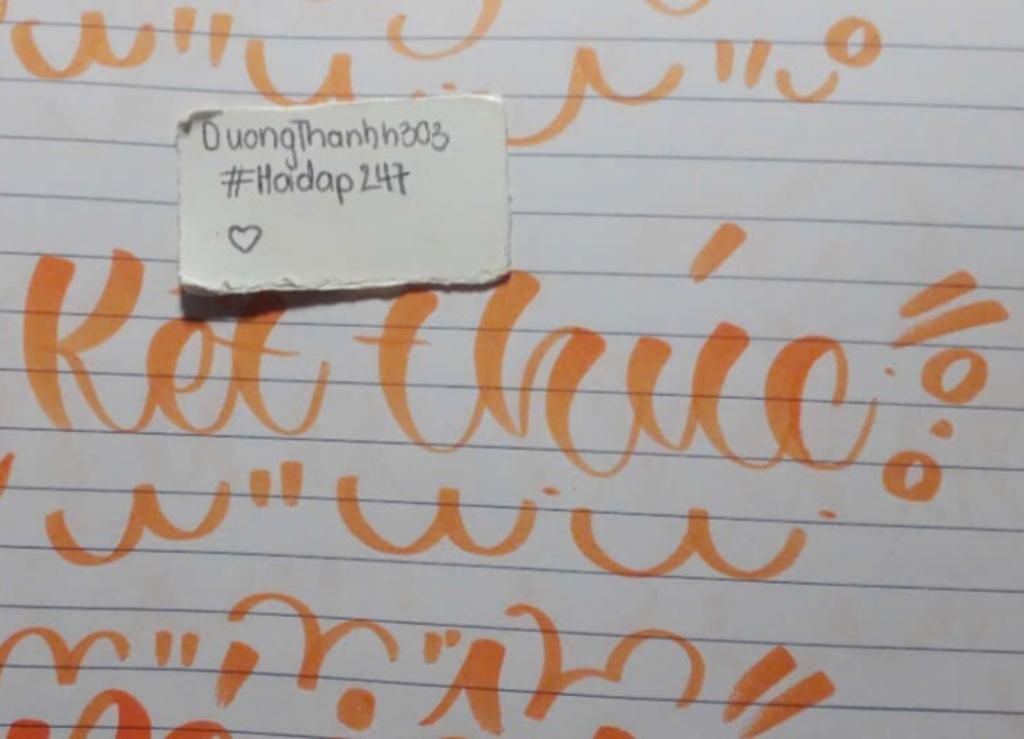 DuongThanhh303
#Hoidap247
Kết thúc